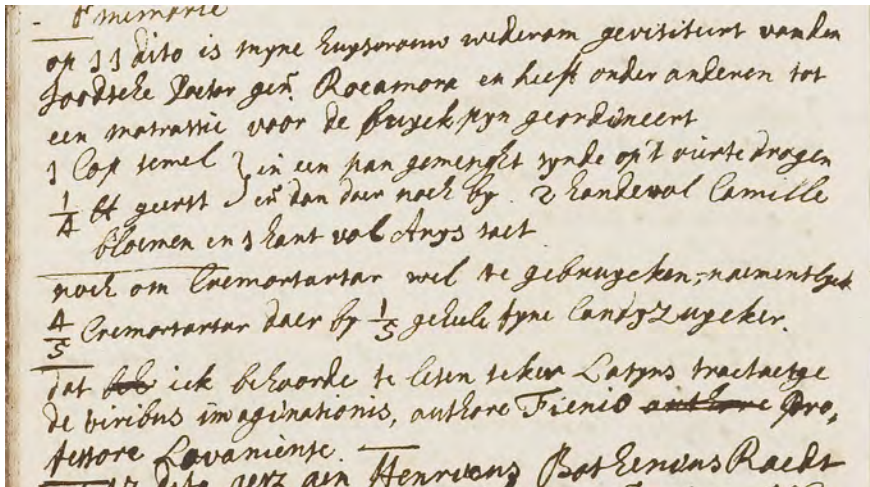 - P memorie
op 11 dito is myne huysvrouw wederom gevisiteert vanden
Joodsche Doctor gen̄. Rocamora en heeft onder anderen tot
een matrassie voor de buyckpyn geordineert
1 Cop semel } in een pan gemenght synde op't vierte drogen
1/4 ℔ geerst } en̄ dan daer noch by. 2 handevol Camille
bloemen en 1 hant vol Anys saet
noch om Cremortartar wel te gebruycken, naementlyck
4/5 Cremortartar daer by 1/5 geheele fyne Candyzuycker.
dat ick behoorde te lesen seker Latyns tractaetge
de viribus imaginationis, authore Fienio authore Pro,
fessore Lovaniense.
12 dito aen Henricus Raedt